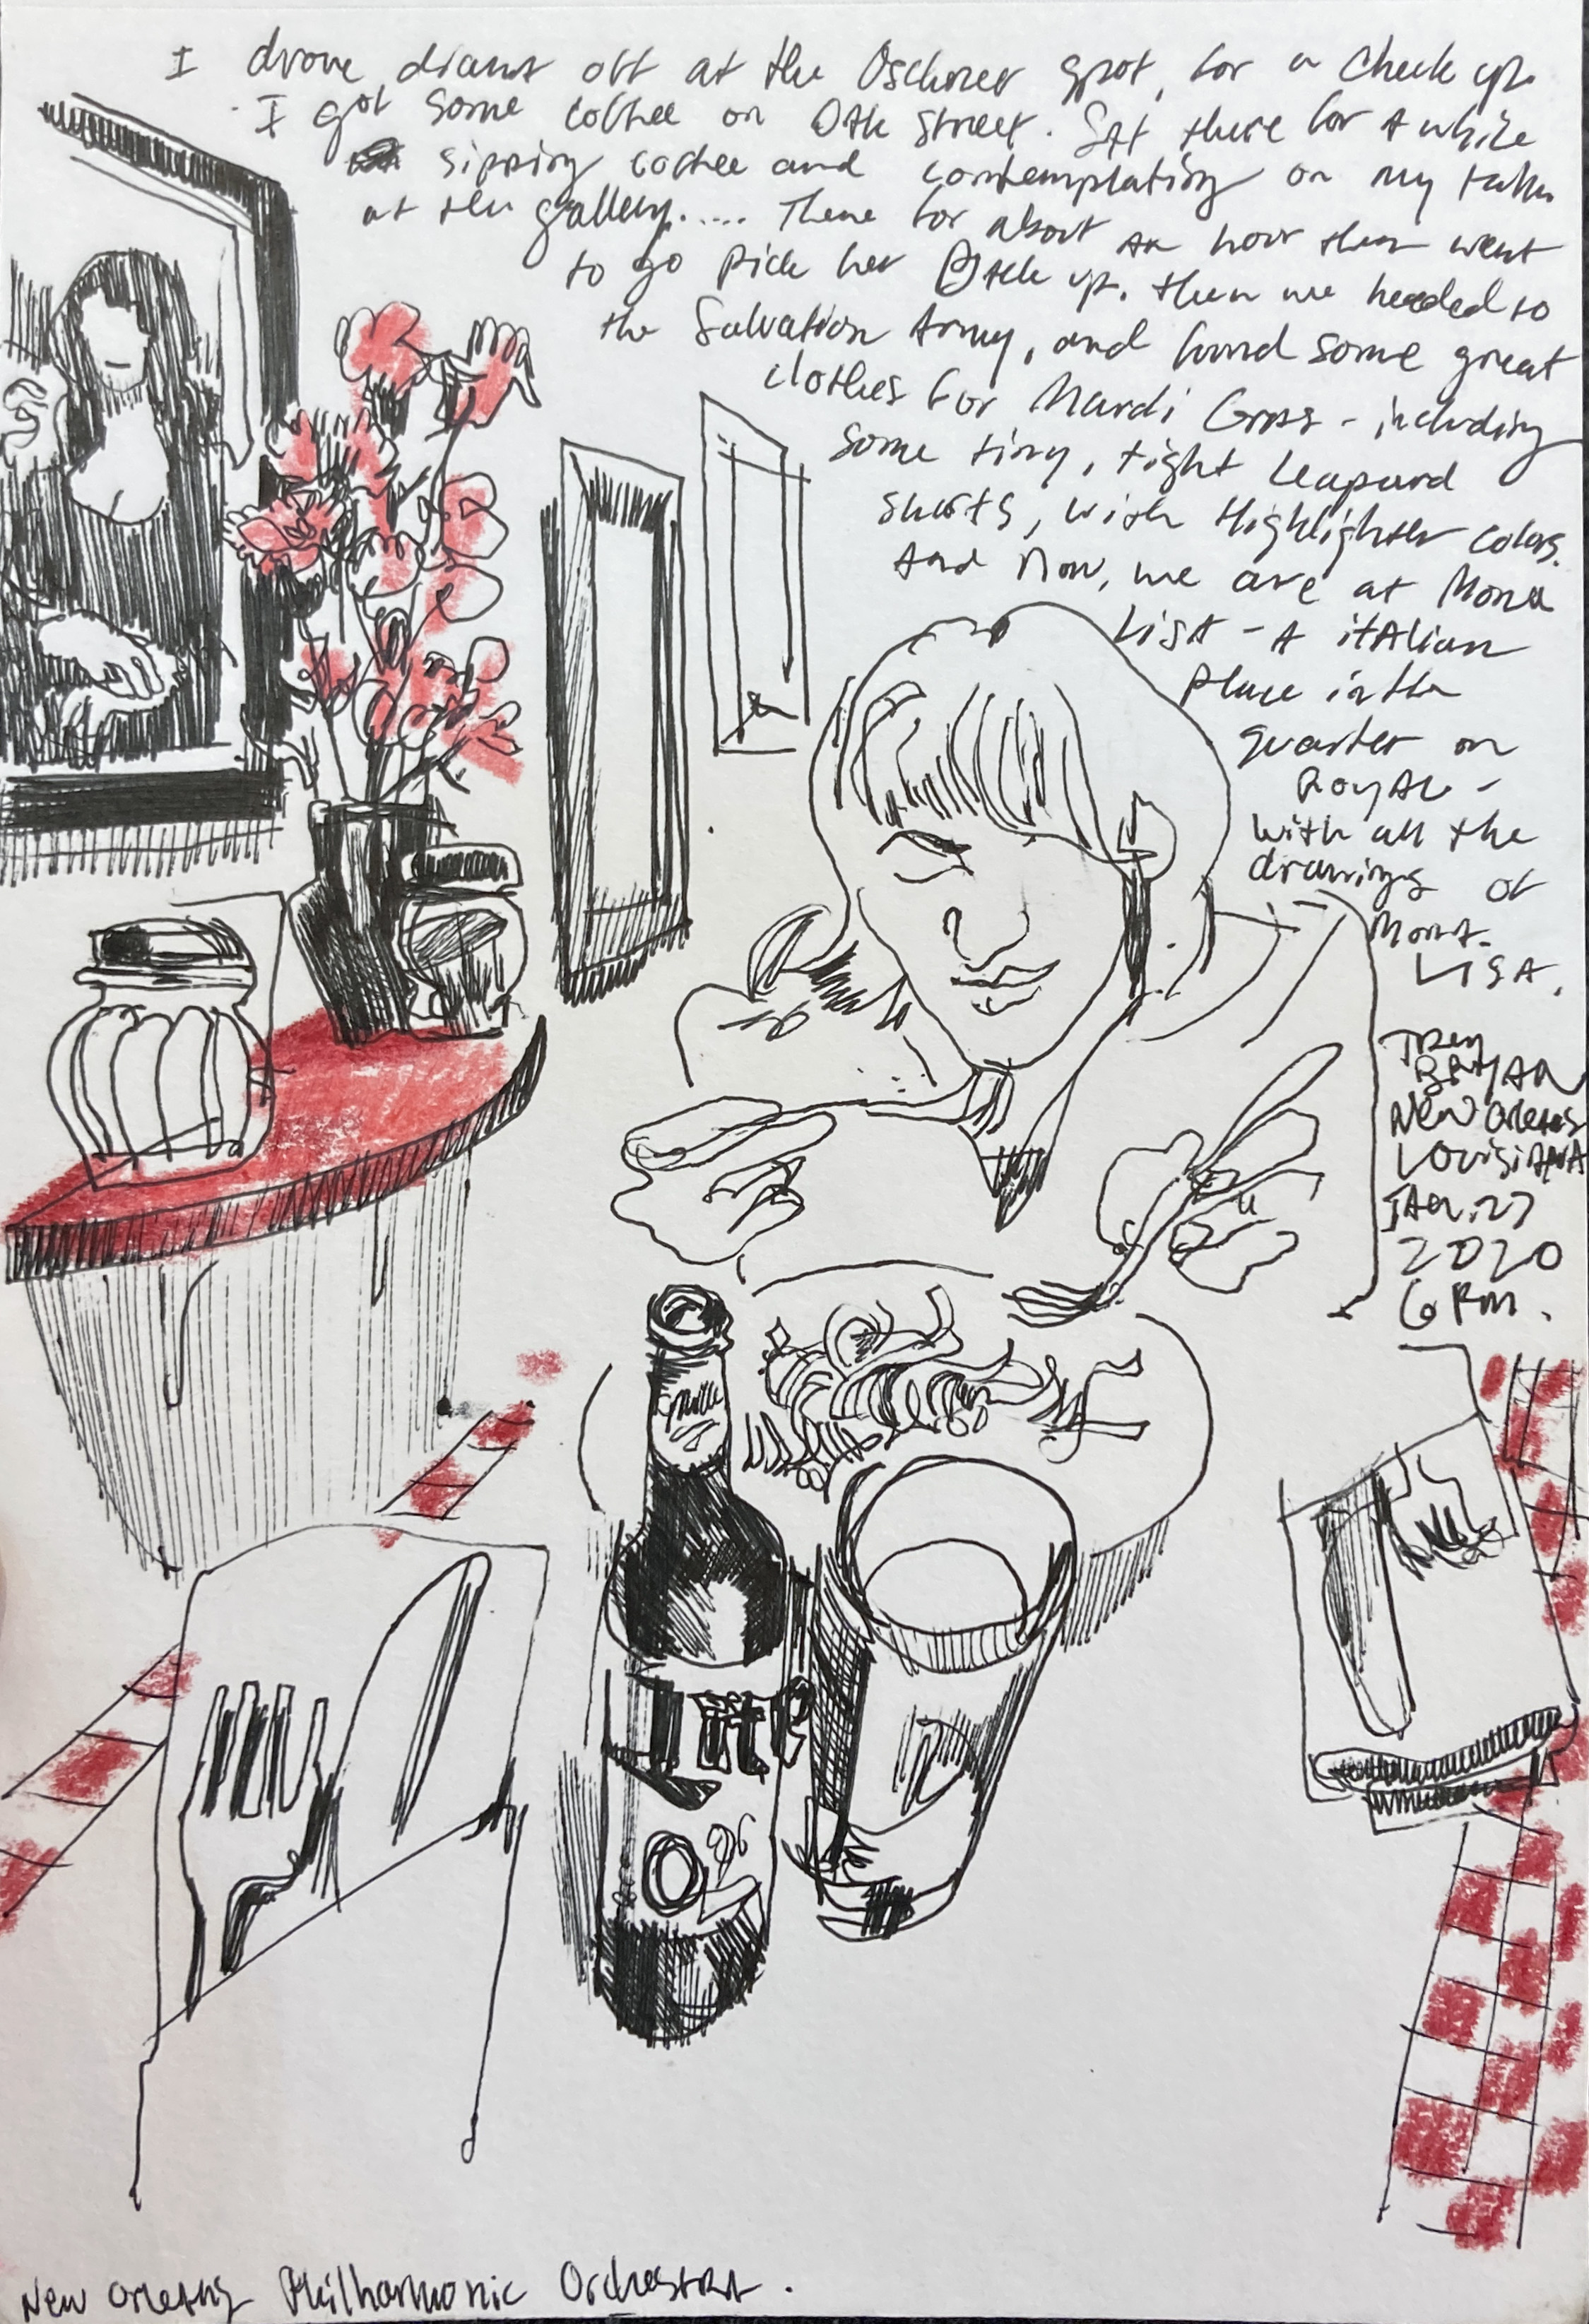 I drove diana off at the Oschner spot, for a check up.
I got some coffee on Oak Street. Sat there for a while
sipping coffee and contemplating on my talk
at the gallery..... There for about an hour then went
to go pick her back up. then we headed to
the Salvation Army, and found some great
clothes for Mardi Gras - including
some tiny, tight leapard
shorts, with Highlighter colors.
And Now, we are at Mona
LISA - A itAlian
place in the
quarter on
ROYAL -
with all the
drawings of
Mona
LISA.
BRYAN
NEW Orleans
LOUISIANA
JAN. 27
2020
6 PM.
lite
New Orleans Philharmonic Orchestra.